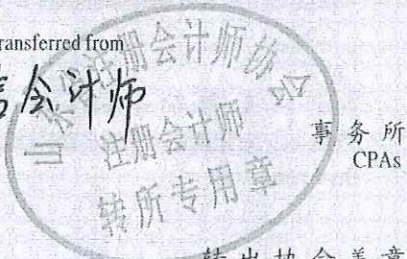 ransferred from
信会计师
山东省注册会计师协会
注册会计师
转所专用章
事务所
CPAs
转出协会盖章